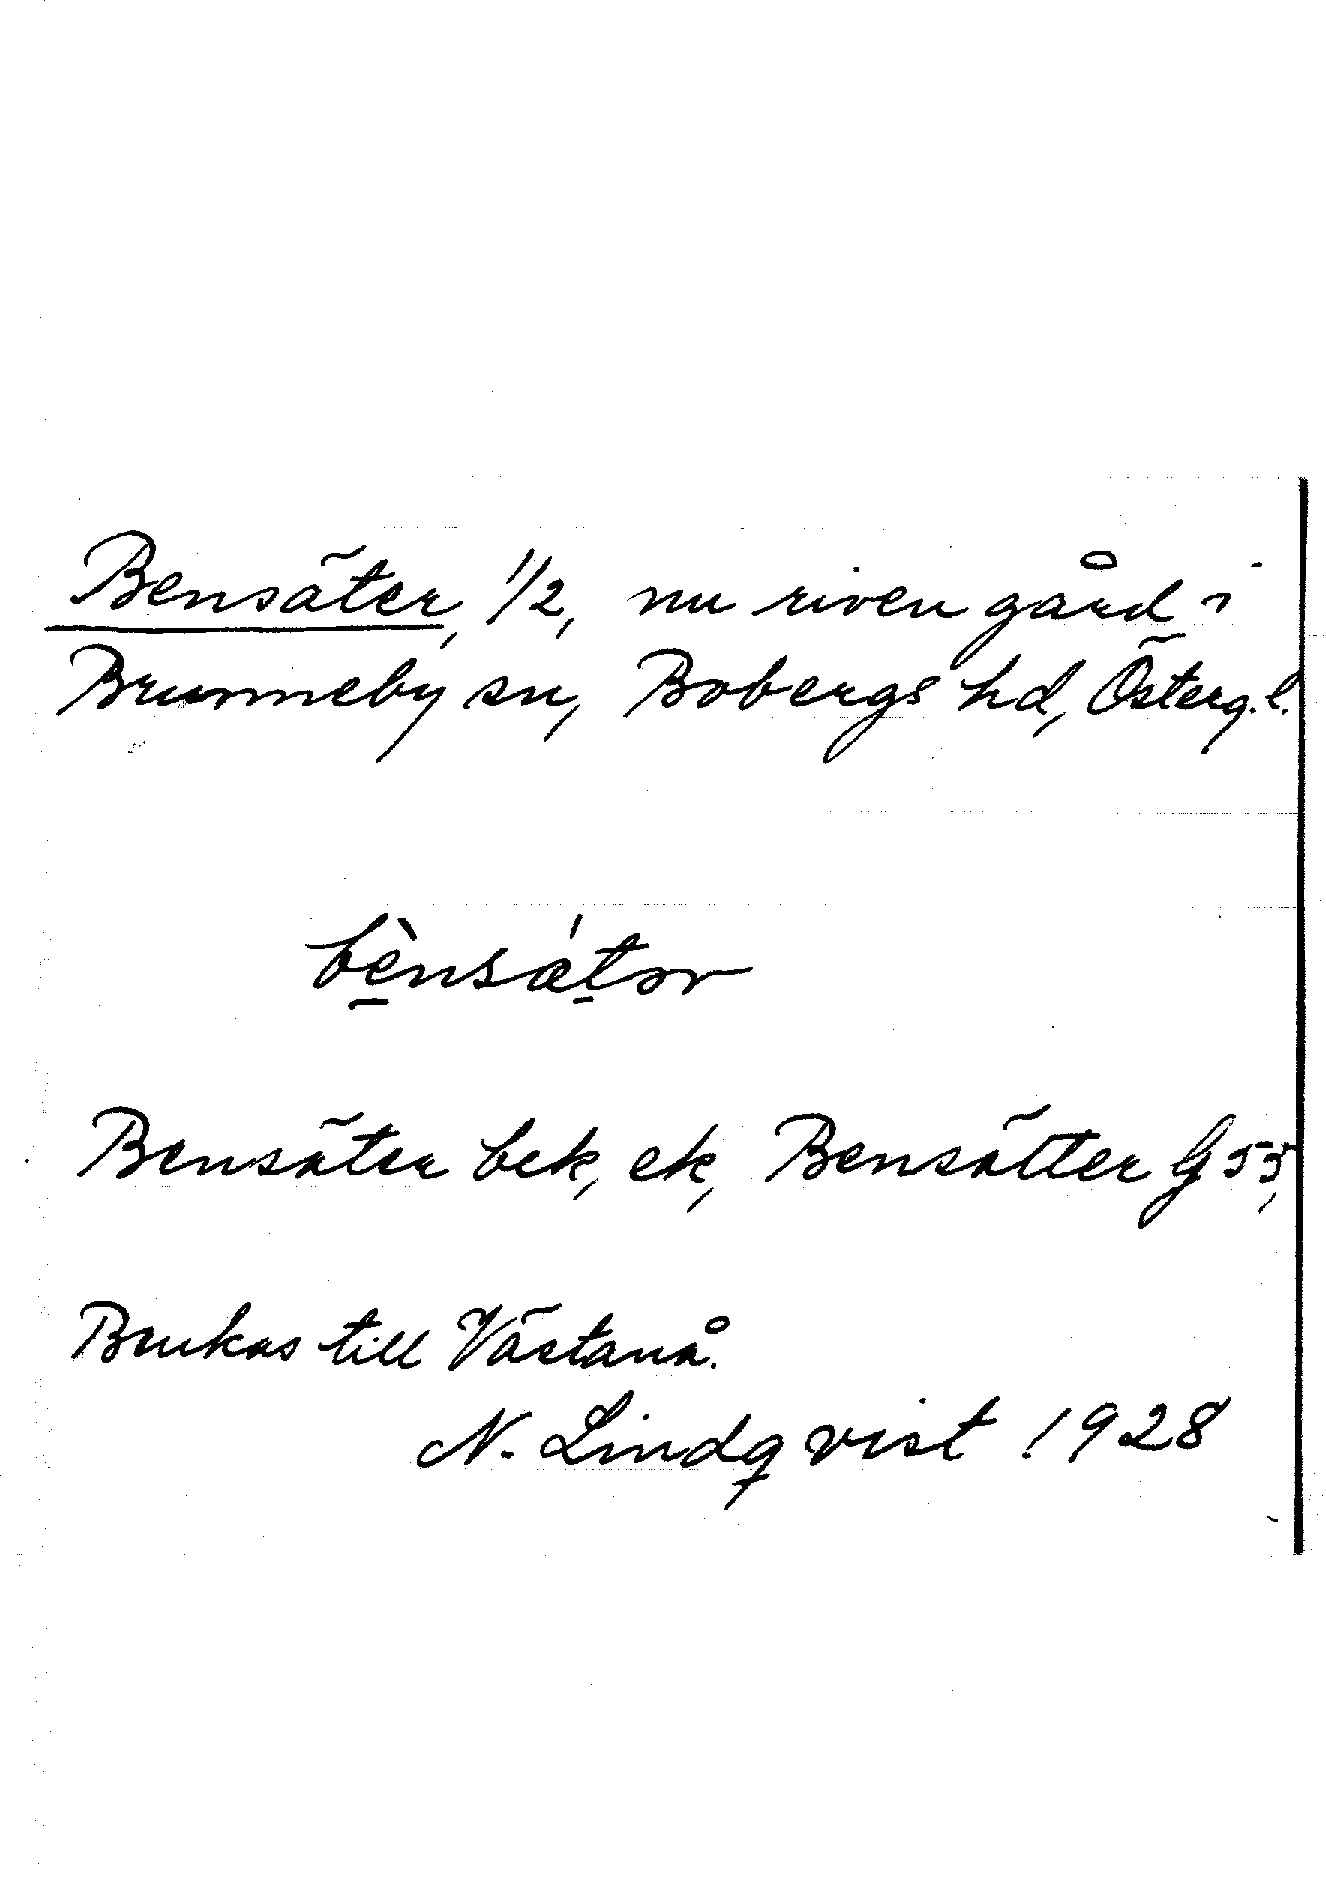 Bensäter, 1/2, nu riven gård i
Brunneby sn, Bobergs hd, Österg.l.
bènsætər
Bensäter bek, ek, Bensätter G 55,
Brukas till Västanå.
N. Lindqvist 1928